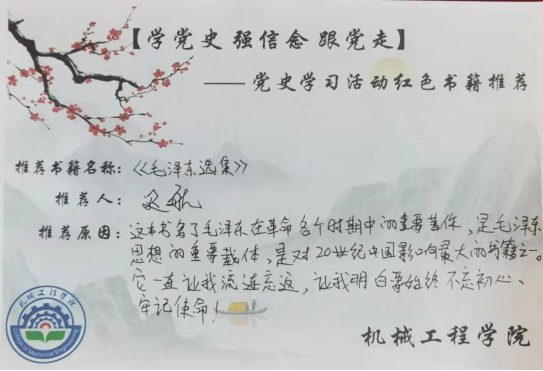 【学党史 强信念 跟党走】
——党史学习活动红色书籍推荐
推荐书籍名称：《毛泽东选集》
推荐人：
推荐原因：这本书名了毛泽东在革命各个时期中的重要著作，是毛泽东
思想的重要载体，是对20世纪中国影响最大的书籍之一。
它一直让我流连忘返，让我明白要始终不忘初心、
牢记使命！
机械工程学院
机械工程学院
College of Mechanical Engineering